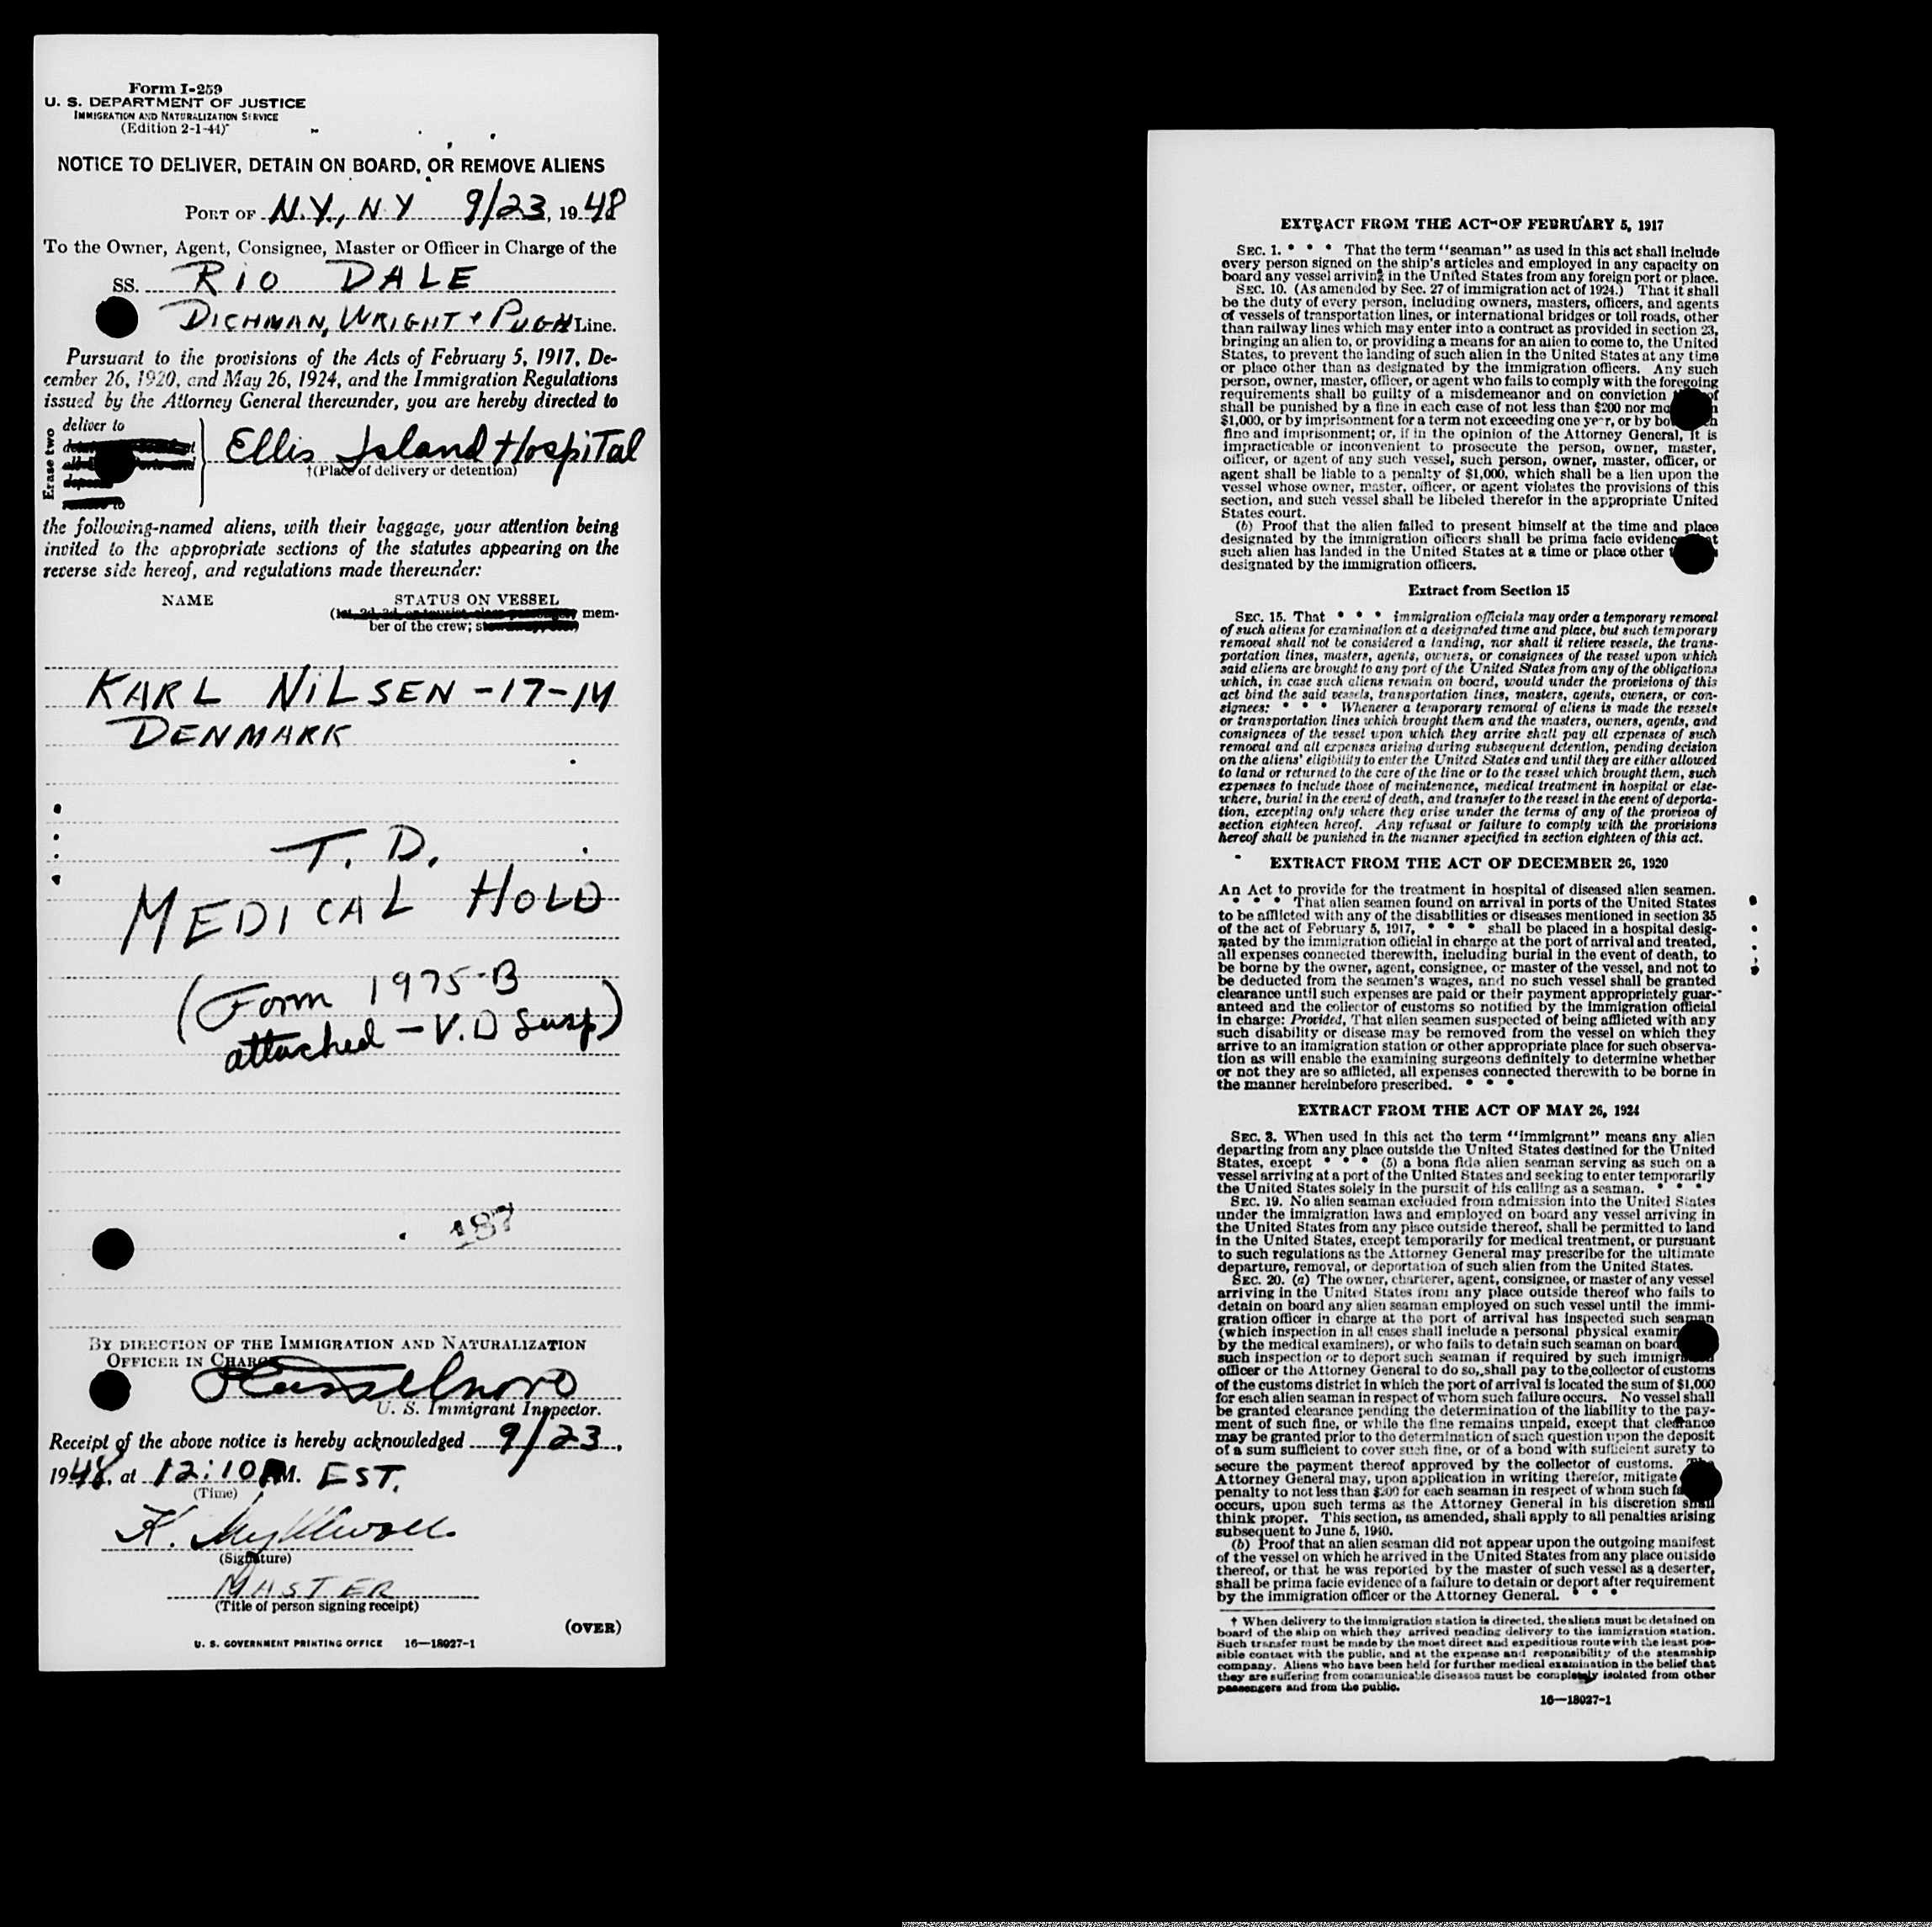 Form I-259
U. S. DEPARTMENT OF JUSTICE
IMMIGRATION AND NATURALIZATION SERVICE
(Edition 2-1-44)
NOTICE TO DELIVER, DETAIN ON BOARD, OR REMOVE ALIENS
PORT OF N.Y., N Y 9/23, 1948
To the Owner, Agent, Consignee, Master or Officer in Charge of the
SS. RIO DALE
DICHMAN, WRIGHT + PUGH Line.
Pursuant to the provisions of the Acts of February 5, 1917, De-
cember 26, 1920, and May 26, 1924, and the Immigration Regulations
issued by the Attorney General thereunder, you are hereby directed to
Erase two
deliver to
Ellis Island Hospital
†(Place of delivery or detention)
the following-named aliens, with their baggage, your attention being
invited to the appropriate sections of the statutes appearing on the
reverse side hereof, and regulations made thereunder:
NAME STATUS ON VESSEL
mem-
ber of the crew;
KARL NILSEN -17-M
DENMARK
T. D.
MEDICAL HOLD
(Form 1975-B
attached - V.D Susp)
187
BY DIRECTION OF THE IMMIGRATION AND NATURALIZATION
OFFICER IN CHARGE
U. S. Immigrant Inspector.
Receipt of the above notice is hereby acknowledged 9/23,
1948, at 12:10 M. EST.
(Time)
K.
(Signature)
MASTER
(Title of person signing receipt)
(OVER)
U. S. GOVERNMENT PRINTING OFFICE 16—18027-1
EXTRACT FROM THE ACT OF FEBRUARY 5, 1917
SEC. 1. * * * That the term "seaman" as used in this act shall include
every person signed on the ship's articles and employed in any capacity on
board any vessel arriving in the United States from any foreign port or place.
SEC. 10. (As amended by Sec. 27 of immigration act of 1924.) That it shall
be the duty of every person, including owners, masters, officers, and agents
of vessels of transportation lines, or international bridges or toll roads, other
than railway lines which may enter into a contract as provided in section 23,
bringing an alien to, or providing a means for an alien to come to, the United
States, to prevent the landing of such alien in the United States at any time
or place other than as designated by the immigration officers. Any such
person, owner, master, officer, or agent who fails to comply with the foregoing
requirements shall be guilty of a misdemeanor and on conviction
shall be punished by a fine in each case of not less than $200 nor
$1,000, or by imprisonment for a term not exceeding one year, or by
fine and imprisonment; or, if in the opinion of the Attorney General, it is
impracticable or inconvenient to prosecute the person, owner, master,
officer, or agent of any such vessel, such person, owner, master, officer, or
agent shall be liable to a penalty of $1,000, which shall be a lien upon the
vessel whose owner, master, officer, or agent violates the provisions of this
section, and such vessel shall be libeled therefor in the appropriate United
States court.
(b) Proof that the alien failed to present himself at the time and place
designated by the immigration officers shall be prima facie evidence
such alien has landed in the United States at a time or place other
designated by the immigration officers.
Extract from Section 15
SEC. 15. That * * * immigration officials may order a temporary removal
of such aliens for examination at a designated time and place, but such temporary
removal shall not be considered a landing, nor shall it relieve vessels, the trans-
portation lines, masters, agents, owners, or consignees of the vessel upon which
said aliens are brought to any port of the United States from any of the obligations
which, in case such aliens remain on board, would under the provisions of this
act bind the said vessels, transportation lines, masters, agents, owners, or con-
signees: * * * Whenever a temporary removal of aliens is made the vessels
or transportation lines which brought them and the masters, owners, agents, and
consignees of the vessel upon which they arrive shall pay all expenses of such
removal and all expenses arising during subsequent detention, pending decision
on the aliens' eligibility to enter the United States and until they are either allowed
to land or returned to the care of the line or to the vessel which brought them, such
expenses to include those of maintenance, medical treatment in hospital or else-
where, burial in the event of death, and transfer to the vessel in the event of deporta-
tion, excepting only where they arise under the terms of any of the provisos of
section eighteen hereof. Any refusal or failure to comply with the provisions
hereof shall be punished in the manner specified in section eighteen of this act.
EXTRACT FROM THE ACT OF DECEMBER 26, 1920
An Act to provide for the treatment in hospital of diseased alien seamen.
* * * That alien seamen found on arrival in ports of the United States
to be afflicted with any of the disabilities or diseases mentioned in section 35
of the act of February 5, 1917, * * * shall be placed in a hospital desig-
nated by the immigration official in charge at the port of arrival and treated,
all expenses connected therewith, including burial in the event of death, to
be borne by the owner, agent, consignee, or master of the vessel, and not to
be deducted from the seamen's wages, and no such vessel shall be granted
clearance until such expenses are paid or their payment appropriately guar-
anteed and the collector of customs so notified by the immigration official
in charge: Provided, That alien seamen suspected of being afflicted with any
such disability or disease may be removed from the vessel on which they
arrive to an immigration station or other appropriate place for such observa-
tion as will enable the examining surgeons definitely to determine whether
or not they are so afflicted, all expenses connected therewith to be borne in
the manner hereinbefore prescribed. * * *
EXTRACT FROM THE ACT OF MAY 26, 1924
SEC. 3. When used in this act the term "immigrant" means any alien
departing from any place outside the United States destined for the United
States, except * * * (5) a bona fide alien seaman serving as such on a
vessel arriving at a port of the United States and seeking to enter temporarily
the United States solely in the pursuit of his calling as a seaman. * * *
SEC. 19. No alien seaman excluded from admission into the United States
under the immigration laws and employed on board any vessel arriving in
the United States from any place outside thereof, shall be permitted to land
in the United States, except temporarily for medical treatment, or pursuant
to such regulations as the Attorney General may prescribe for the ultimate
departure, removal, or deportation of such alien from the United States.
SEC. 20. (a) The owner, charterer, agent, consignee, or master of any vessel
arriving in the United States from any place outside thereof who fails to
detain on board any alien seaman employed on such vessel until the immi-
gration officer in charge at the port of arrival has inspected such seaman
(which inspection in all cases shall include a personal physical
by the medical examiners), or who fails to detain such seaman on board
such inspection or to deport such seaman if required by such
officer or the Attorney General to do so, shall pay to the collector of customs
of the customs district in which the port of arrival is located the sum of $1,000
for each alien seaman in respect of whom such failure occurs. No vessel shall
be granted clearance pending the determination of the liability to the pay-
ment of such fine, or while the fine remains unpaid, except that clearance
may be granted prior to the determination of such question upon the deposit
of a sum sufficient to cover such fine, or of a bond with sufficient surety to
secure the payment thereof approved by the collector of customs. The
Attorney General may, upon application in writing therefor, mitigate
penalty to not less than $200 for each seaman in respect of whom such
occurs, upon such terms as the Attorney General in his discretion shall
think proper. This section, as amended, shall apply to all penalties arising
subsequent to June 5, 1940.
(b) Proof that an alien seaman did not appear upon the outgoing manifest
of the vessel on which he arrived in the United States from any place outside
thereof, or that he was reported by the master of such vessel as a deserter,
shall be prima facie evidence of a failure to detain or deport after requirement
by the immigration officer or the Attorney General. * * *
† When delivery to the immigration station is directed, the aliens must be detained on
board of the ship on which they arrived pending delivery to the immigration station.
Such transfer must be made by the most direct and expeditious route with the least pos-
sible contact with the public, and at the expense and responsibility of the steamship
company. Aliens who have been held for further medical examination in the belief that
they are suffering from communicable diseases must be completely isolated from other
passengers and from the public.
16—18027-1